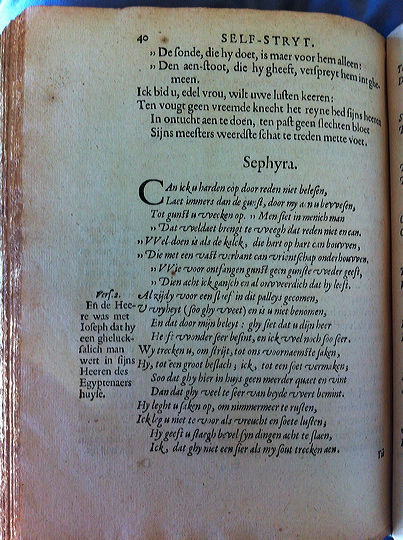 40 SELF-STRYT.
„ De sonde, die hy doet, is maer voor hem alleen:
„ Den aen-stoot, die hy gheeft, verspreyt hem int ghe-
meen.
Ick bid u, edel vrou, wilt uwe lusten keeren:
Ten vougt geen vreemde knecht het reyne bed sijns heeren
In ontucht aen te doen, ten past geen slechten bloet
Sijns meesters weerdste schat te treden mette voet.
Sephyra.
CAn ick u harden cop door reden niet belesen,
Laet immers dan de gunst, door my aen u bewesen,
Tot gunst u wecken op. „ Men siet in menich man
„ Dat weldaet brengt te weegh dat reden niet en can.
„ Wel-doen is als de kalck, die hart op hart can bouwen,
„ Die met een vast verbant can vrientschap onderhouwen,
„ Wie voor ontfangen gunst geen gunste weder geeft,
„ Dien acht ick gansch en al onweerdich dat hy leeft.
Vers. 2.
En de Hee-
re was met
Ioseph dat hy
een gheluck-
salich man
wert in sijns
Heeren des
Egyptenaers
huyse.
Al zijdy voor een slaef in dit palleys gecomen,
U vryheyt (soo ghy weet) en is u niet benomen,
En dat door mijn beleyt: ghy siet dat u dijn heer
Heeft wonder seer besint, en ick wel noch soo seer.
Wy trecken u, om strijt, tot ons voornaemste saken,
Hy, tot een groot beslach; ick, tot een soet vermaken;
Soo dat ghy hier in huys geen meerder quaet en vint
Dan dat ghy veel te seer van beyde wert bemint.
Hy leght u saken op, om nimmermeer te rusten,
Ick leg u niet te voor als vreucht en soete lusten;
Hy geeft u staegh bevel syn dingen acht te slaen,
Ick, dat ghy niet een sier als my sout trecken aen.